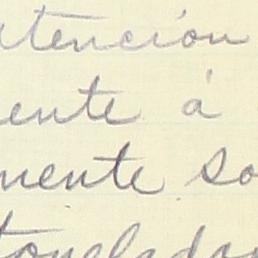 atención
ente á
mente so
toneladas